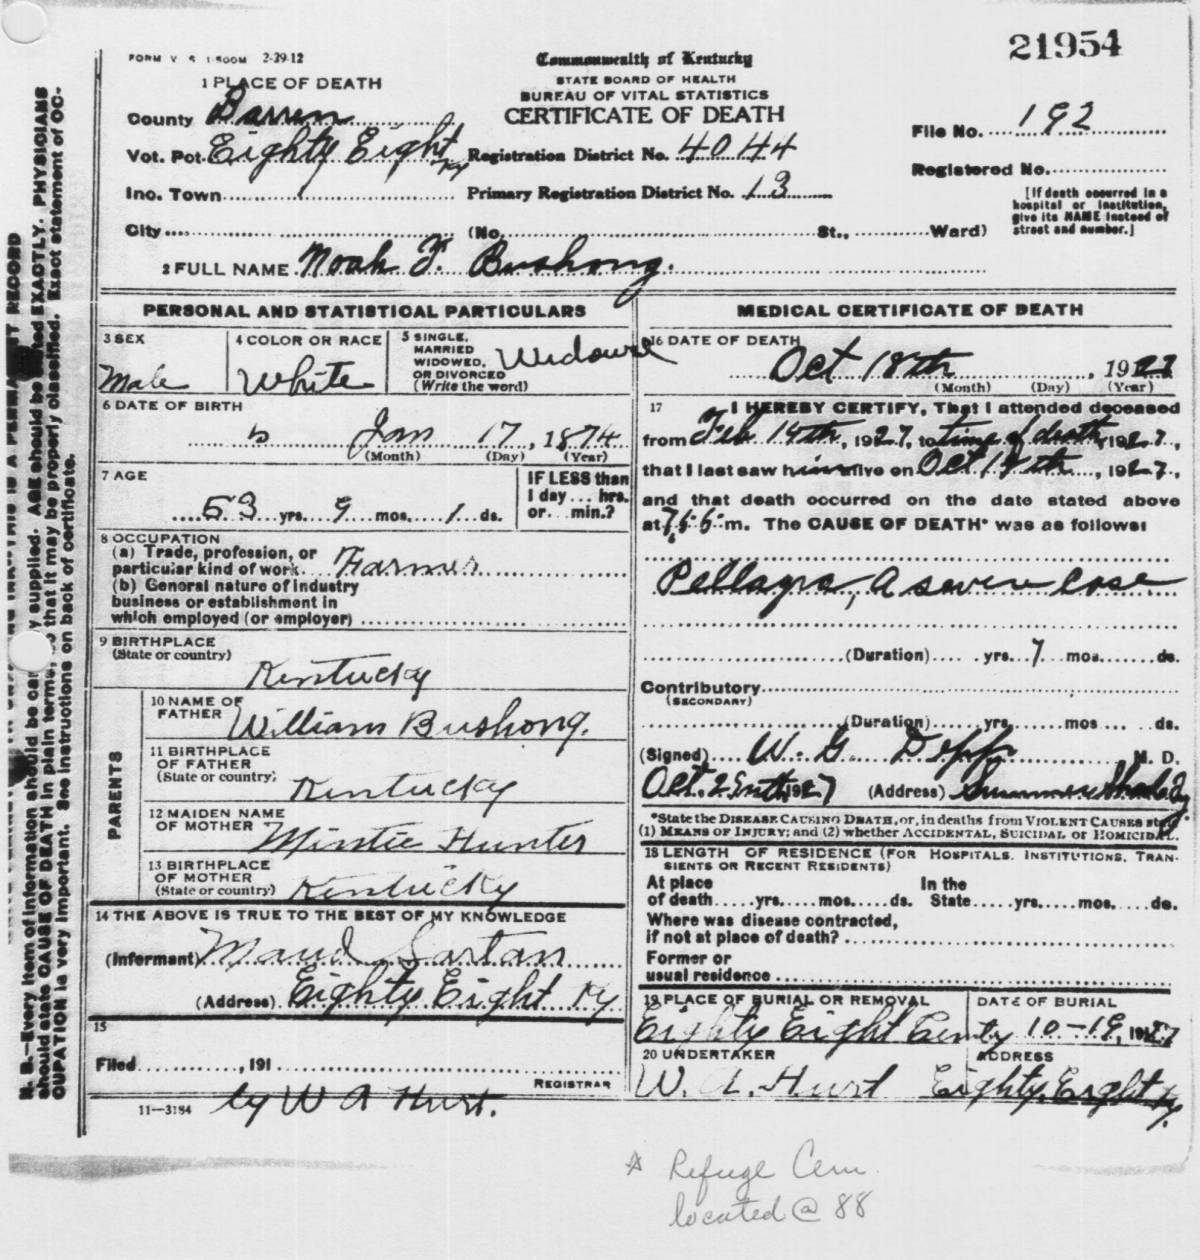 21954
FORM V. S. 1-500M 2-29-12
Commonwealth of Kentucky
STATE BOARD OF HEALTH
BUREAU OF VITAL STATISTICS
CERTIFICATE OF DEATH
1 PLACE OF DEATH
County Barren
Vot. Pct. Eighty Eight Ky
Registration District No. 4044
File No. 192
Registered No.
Inc. Town
Primary Registration District No. 13
[If death occurred in a hospital or institution, give its NAME instead of street and number.]
City (No. St., Ward)
2 FULL NAME Noah F. Bushong.
PERSONAL AND STATISTICAL PARTICULARS
3 SEX
Male
4 COLOR OR RACE
White
5 SINGLE, MARRIED WIDOWED, OR DIVORCED (Write the word)
6 DATE OF BIRTH
Jan 17, 1874
(Month) (Day) (Year)
7 AGE
53 yrs. 9 mos. 1 ds.
IF LESS than 1 day... hrs. or... min.?
8 OCCUPATION
(a) Trade, profession, or
particular kind of work Farmer
(b) General nature of industry
business or establishment in
which employed (or employer)
9 BIRTHPLACE
(State or country)
Kentucky
PARENTS
10 NAME OF
FATHER William Bushong.
11 BIRTHPLACE
OF FATHER
(State or country) Kentucky
12 MAIDEN NAME
OF MOTHER Mintie Hunter
13 BIRTHPLACE
OF MOTHER
(State or country) Kentucky
14 THE ABOVE IS TRUE TO THE BEST OF MY KNOWLEDGE
(Informant) Maud Sartan
(Address) Eighty Eight Ky
15
Filed , 191
REGISTRAR
11-3184 by W A Hurt.
MEDICAL CERTIFICATE OF DEATH
16 DATE OF DEATH
Oct 18th , 1927
(Month) (Day) (Year)
17 I HEREBY CERTIFY, That I attended deceased
from Feb 14th, 1927, to time of death, 1927,
that I last saw him alive on Oct , 1927,
and that death occurred on the date stated above
at m. The CAUSE OF DEATH* was as follows:
Pellagra, a severe case
(Duration) yrs. 7 mos. ds.
Contributory
(SECONDARY)
(Duration) yrs. mos. ds.
(Signed) W. G. Depp M. D.
Oct. 1927 (Address) Summer Shade Ky
*State the DISEASE CAUSING DEATH, or, in deaths from VIOLENT CAUSES state
(1) MEANS OF INJURY; and (2) whether ACCIDENTAL, SUICIDAL or HOMICIDAL.
18 LENGTH OF RESIDENCE (FOR HOSPITALS, INSTITUTIONS, TRAN-
SIENTS OR RECENT RESIDENTS)
At place of death yrs. mos. ds. In the State yrs. mos. ds.
Where was disease contracted,
if not at place of death?
Former or
usual residence
19 PLACE OF BURIAL OR REMOVAL
Eighty Eight
DATE OF BURIAL
10-19, 1927
20 UNDERTAKER
W. A. Hurt
ADDRESS
Eighty. Eight Ky.
N. B.—Every item of information should be supplied. AGE should be EXACTLY. PHYSICIANS
should state CAUSE OF DEATH in plain terms, that it may be properly classified. Exact statement of OC-
CUPATION is very important. See instructions on back of certificate.
Refuge Cem.
located @ 88